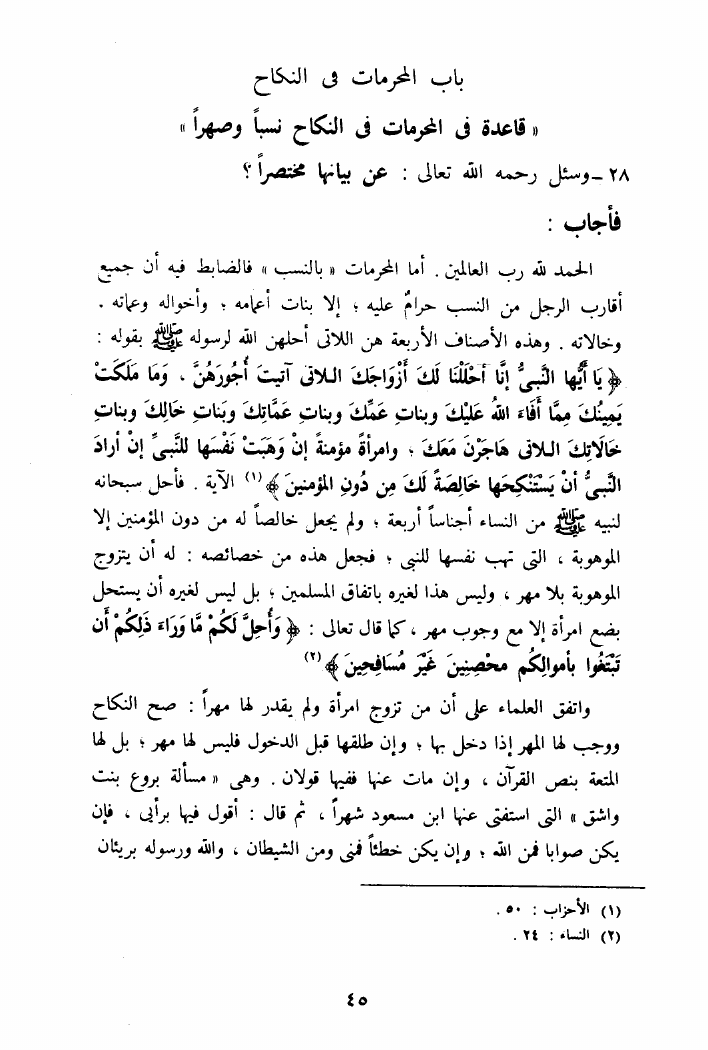 باب المحرمات فى النكاح
« قاعدة فى المحرمات فى النكاح نسباً وصهراً »
٢٨ ـ وسئل رحمه الله تعالى : عن بيانها مختصراً ؟
فأجاب :
الحمد لله رب العالمين . أما المحرمات « بالنسب » فالضابط فيه أن جميع
أقارب الرجل من النسب حرامٌ عليه ؛ إلا بنات أعمامه ؛ وأخواله وعماته .
وخالاته . وهذه الأصناف الأربعة هن اللاتى أحلهن الله لرسوله ﷺ بقوله :
﴿ يَا أَيُّهَا النَّبِىُّ إِنَّا أَحْلَلْنَا لَكَ أَزْوَاجَكَ اللاتى آتيتَ أُجُورَهُنَّ ، وَمَا مَلَكَتْ
يَمِينُكَ مِمَّا أَفَاءَ اللهُ عَلَيْكَ وبناتِ عَمِّكَ وبناتِ عَمَّاتِكَ وبَناتِ خَالِكَ وبناتِ
خَالَاتِكَ اللاتى هَاجَرْنَ مَعَكَ ؛ وامرأةً مؤمنةً إنْ وَهَبَتْ نَفْسَهَا للنَّبىِّ إنْ أرادَ
النَّبىُّ أنْ يَسْتَنْكِحَهَا خَالِصَةً لَكَ مِن دُونِ المؤمنينَ ﴾ (١) الآية . فأحل سبحانه
لنبيه ﷺ من النساء أجناساً أربعة ؛ ولم يجعل خالصاً له من دون المؤمنين إلا
الموهوبة ، التى تهب نفسها للنبى ؛ فجعل هذه من خصائصه : له أن يتزوج
الموهوبة بلا مهر ، وليس هذا لغيره باتفاق المسلمين ؛ بل ليس لغيره أن يستحل
بضع امرأة إلا مع وجوب مهر ، كما قال تعالى : ﴿ وَأُحِلَّ لَكُمْ مَّا وَرَاءَ ذَلِكُمْ أَن
تَبْتَغُوا بأموالِكُم محْصِنِينَ غَيْرَ مُسَافِحِينَ ﴾ (٢)
واتفق العلماء على أن من تزوج امرأة ولم يقدر لها مهراً : صح النكاح
ووجب لها المهر إذا دخل بها ؛ وإن طلقها قبل الدخول فليس لها مهر ؛ بل لها
المتعة بنص القرآن ، وإن مات عنها ففيها قولان . وهى « مسألة بروع بنت
واشق » التى استفتى عنها ابن مسعود شهراً ، ثم قال : أقول فيها برأيى ، فإن
يكن صوابا فمن الله ؛ وإن يكن خطئاً فمنى ومن الشيطان ، والله ورسوله بريئان
(١) الأحزاب : ٥٠ .
(٢) النساء : ٢٤ .
٤٥